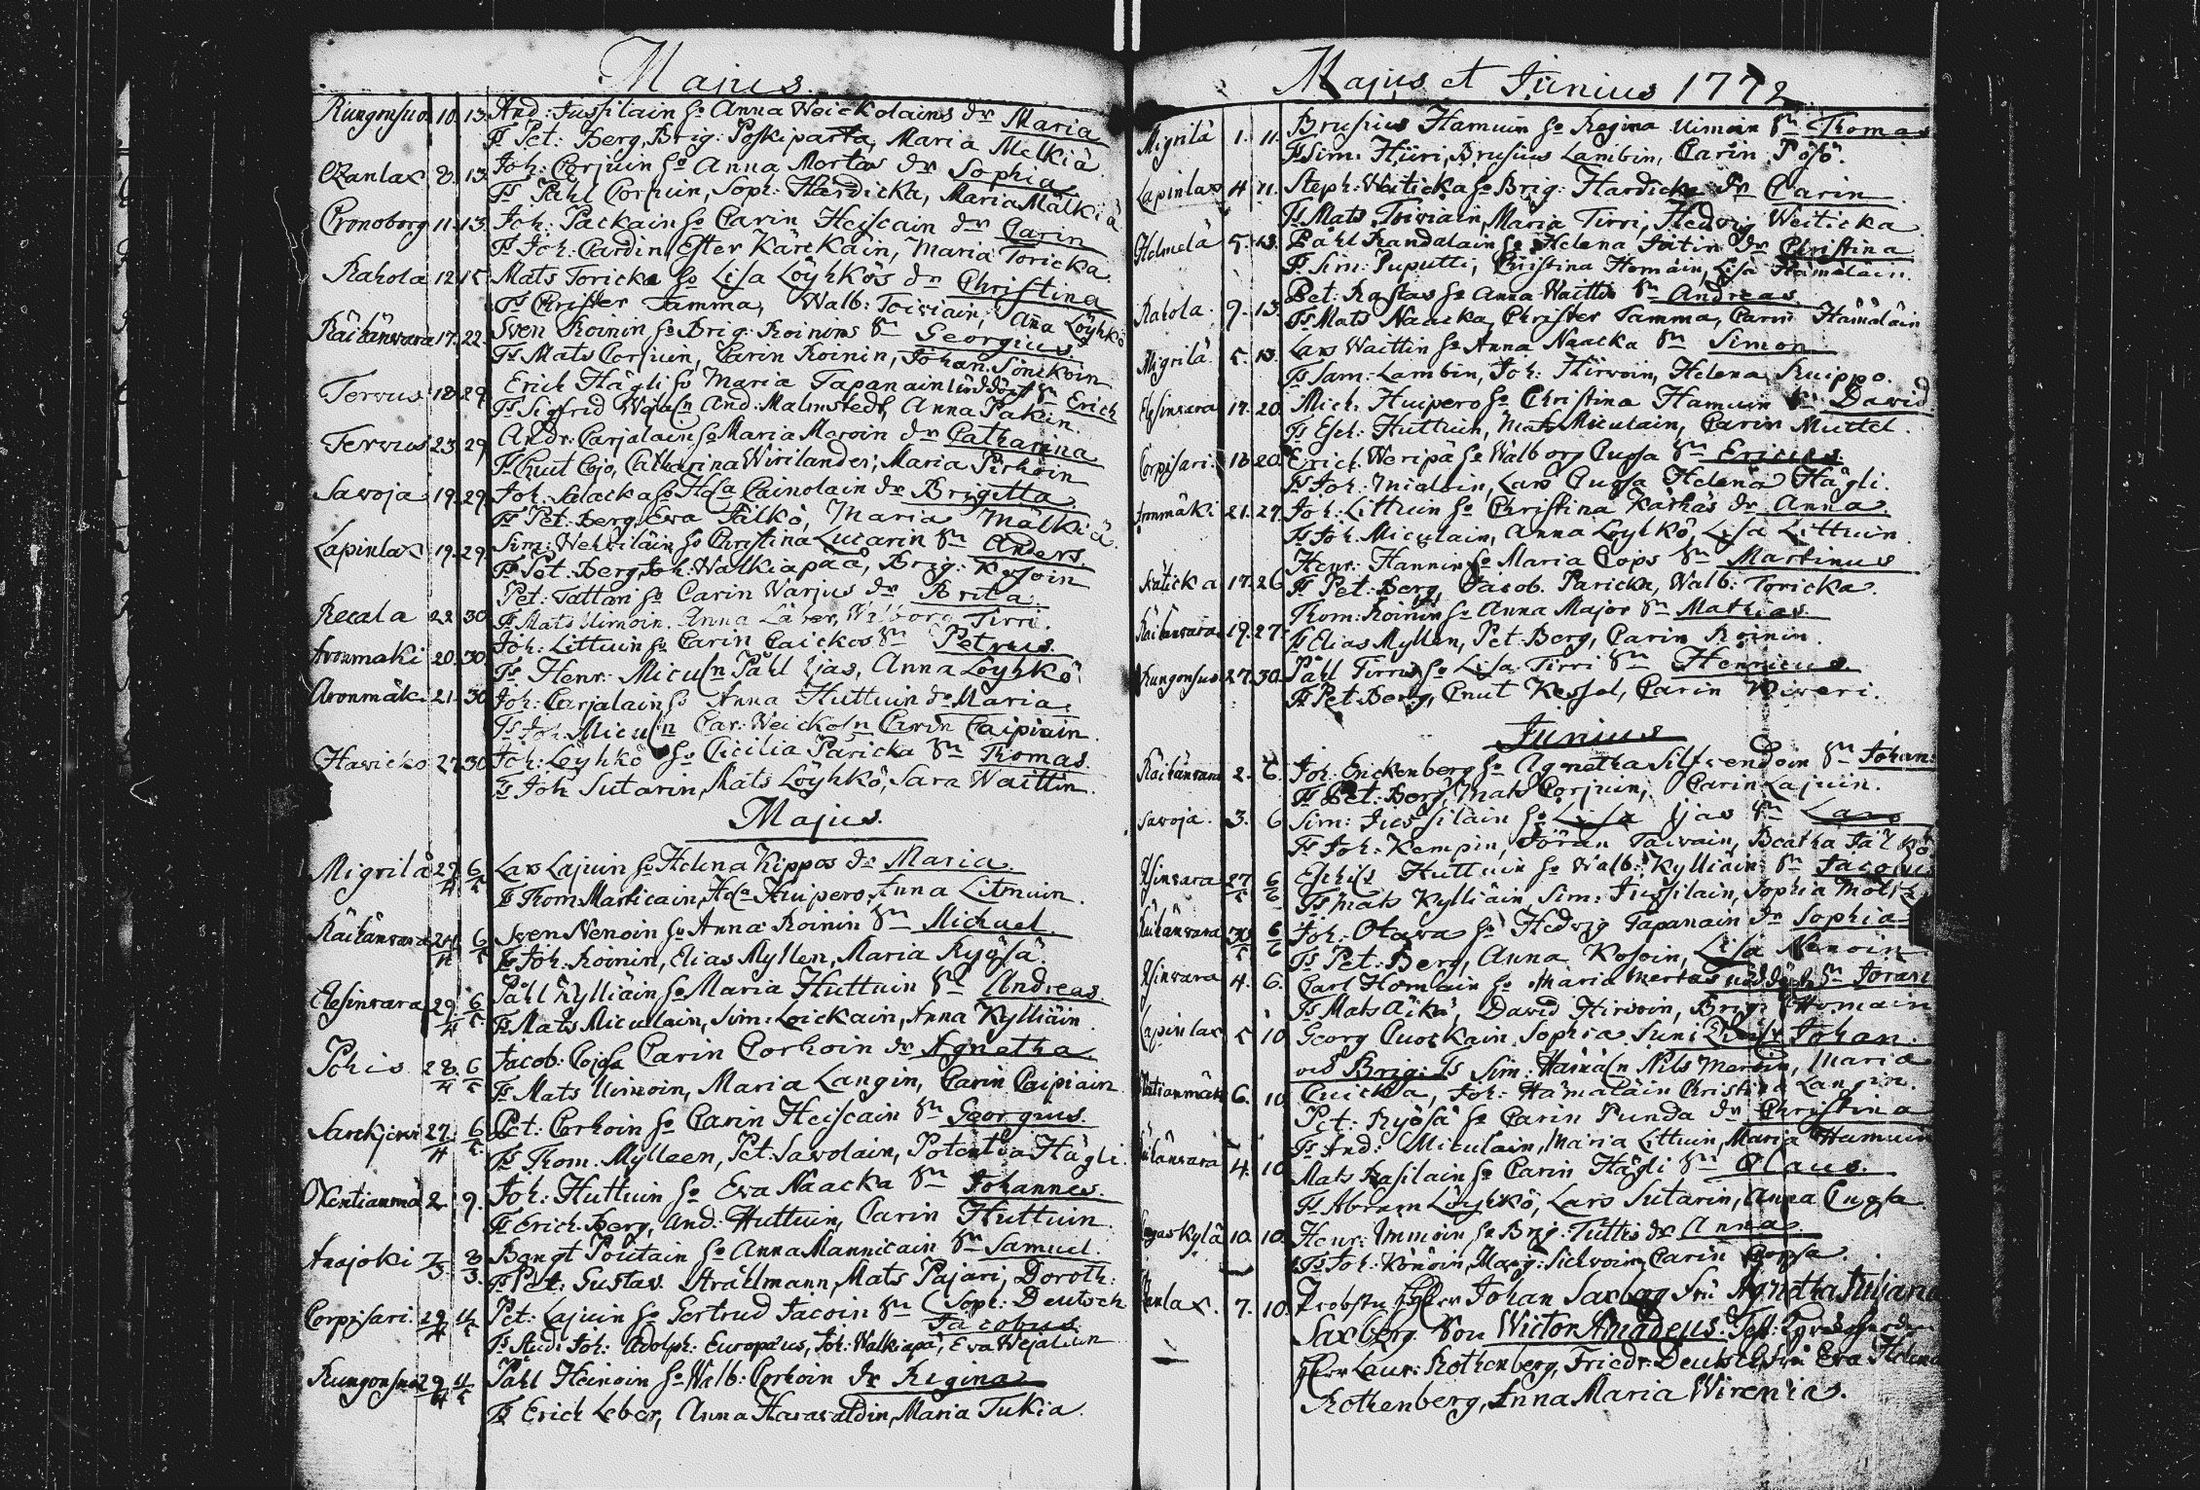 Majus.
Rungonsuo 10. 13. And: Jussilain Ho Anna Weickolains dr Maria
Ts Pet: Berg, Brig: Poskiparta, Maria Melkiä
Exanlax 8. 13. Joh: Corjuin Ho Anna Mertas dr Sophia
Ts Påhl Corjuin, Soph: Hardicka, Maria Mälkiä
Cronoborg 11. 13. Joh: Packain Ho Carin Heiscain dr Carin
Ts Joh: Cardin Ester Kärckäin, Maria Toricka
Rahola 12 15 Mats Toricka Ho Lisa Löyhkös dr Christina
Ts Christer Tamma, Walb: Toiviain, Anna Löyhkö
Räihänvara 17. 22. Sven Koinin Ho Brig: Koinons Sn Georgius
Ts Mats Corjuin, Carin Koinin, Johan Sönckoin
Tervus 18 29. Erich Hägli Ho Maria Tapanain Sn Erich
Ts Sigfrid And: Malmstedt, Anna Pakin.
Tervus 23 29 Andr: Carjalain Ho Maria Moroin dr Catharina
Ts Cnut Cojo, Catharina Wirilander, Maria Pirhöin
Savoja 19. 29. Joh: Selacka Ho Hla Cainolain dr Brigitta
Ts Pet: Berg, Eva Jälkö, Maria Mälkiä
Lapinlax 19. 29. Sim: Wehviläin Ho Christina Lucarin Sn Anders.
Ts Pet: Berg, Joh: Walkiapää, Brig: Kosoin
Recala 22 30 Pet: Tattari Ho Carin Warjus dr Brita
Ts Mats Uimoin, Anna Läber, Walborg Tirri.
Aronmäki 20. 30. Joh: Littuin Ho Carin Caickos Sn Petrus.
Ts Henr: Miculn Påhl Ijas, Anna Löyhkö
Aronmäki 21. 30 Joh: Carjalain Ho Anna Huttuin dr Maria.
Ts Joh: Miculn Car: Weickoln Carin Caipiain
Hawicko 27. 30 Joh: Löyhkö Ho Cicilia Paricka Sn Thomas.
Ts Joh Sutarin, Mats Löyhkö, Sara Waittin.
Majus.
Migrilä 29/4 6/5 Lars Lajuin Ho Helena Kippos dr Maria.
Ts Thom Marticain, Hla Huipero, Anna Litmuin.
Räihänvara 24/4 6/5 Sven Nenoin Ho Anna Koinin Sn Michael.
Ts Joh: Koinin, Elias Myllen, Maria Ryösä.
Elesinvara 29/4 6/5 Påhl Kylliäin Ho Maria Huttuin Sn Andreas.
Ts Mats Miculain, Sim: Loickain, Anna Kylliäin
Pohis 28/4 6/5 Jacob: Carin Corhoin dr Agnetha.
Ts Mats Uimoin, Maria Langin, Carin Caipiain
Sarckjerwi 27/4 6/5 Pet: Corhoin Ho Carin Heiscain Sn Georgius.
Ts Thom: Mylleen, Pet: Savolain, Potentia Hägli.
Oxentianmä 2. 9. Joh: Huttuin Ho Eva Naacka Sn Johannes.
Ts Erich Berg, And: Huttuin, Carin Huttuin.
Anajoki 7/3 8/3. Bängt Poutain Ho Anna Mannicain Sn Samuel.
Ts Pet: Gustav: Strählmann, Mats Pajari, Doroth:
Soph: Deutsch
Corpisari. 29/4 11/5 Pet: Lajuin Ho Gertrud Jacoin Sn Jacobus
Ts Stud: Joh: Adolph: Europæus, Joh: Walkiapä, Eva Wejaluin
Rungonsuo 29/4 11/5 Påhl Heinoin Ho Walb: Corhoin dr Regina
Ts Erich Leber, Anna Haravaldin, Maria Tukia.
Majus et Junius 1772
Migrilä 1. 11. Brusius Hamuin Ho Regina Uimoin Sn Thomas
Ts Sim: Hüri, Brusius Lambin, Carin Pösö.
Lapinlax 4 11. Steph: Waiticka Ho Brig: Hardicka dr Carin
Ts Mats Toiviain, Maria Tirri, Hedvig Weiticka
Helmelä 5. 13. Påhl Randalain Ho Helena Toitin dr Christina
Ts Sim: Puputti, Christina Homain, Lisa Hämäläin.
Rahola. 9. 13. Pet: Rastas Ho Anna Waittis Sn Andreas.
Ts Mats Naacka, Christer Tamma, Carin Hämäläin
Migrilä. 5. 13. Lars Waittin Ho Anna Naacka Sn Simon
Ts Sam: Lambin, Joh: Hirvoin, Helena Kuippo.
Elesinvara 17. 20. Mich: Huipero Ho Christina Hamuin Sn David
Ts Esch: Huttuin, Mats Miculain, Carin Muttel.
Corpisari. 18 20. Erich Weripä Ho Walborg Cugsa Sn Ericus.
Ts Joh: Mialoin, Lars Cugsa Helena Hägli.
Aronmäki 21. 27. Joh: Littuin Ho Christina Karhäs dr Anna
Ts Joh: Miculain, Anna Löyhkö, Lisa Littuin.
17. 26 Henr: Hannin Ho Maria Cops Sn Martinus
Ts Pet: Berg, Jacob Paricka, Walb: Toricka.
Räihänvara 19. 27. Thom: Koinin Ho Anna Major Sn Mathias.
Ts Elias Myllen, Pet: Berg, Carin Koinin.
Rungonsuo. 27. 30. Påhl Tirrus Ho Lisa Tirri Sn Henricus.
Ts Pet: Berg, Cnut Kessel, Carin Kiveri.
Junius
Räihänvara 2. 6. Joh: Enckenberg Ho Agnetha Silfvendoin Sn Johan:
Ts Pet: Berg, Mats Corjuin, Carin Lajuin.
Savoja. 3. 6 Sim: Jussilain Ho Lisa Ijas Sn Lars
Ts Joh: Kempin, Jöran Taivain, Beatha Jälkö
Elesinvara 27/5 6/6 Eschils Huttuin Ho Walb: Kylliäin Sn Jacobus
Ts Mats Kylliäin, Sim: Jussilain, Sophia
Räihänvara 30/5 6/6 Joh: Otava Ho Hedvig Tapanain dr Sophia
Ts Pet: Berg, Anna Kosoin, Lisa Nenoin
Elesinvara 4. 6. Carl Homlain Ho Maria Mertas Sn Jöran
Ts Mats Äikä, David Hirvoin, Brig: Homain
Lapinlax 5 10 Georg Cuockain Sophia Suni Johan.
ock Brig: Ts Sim: Hämäln Nils Mertin, Maria
Cuicka, Joh: Hämäläin Christina Langin.
6. 10 Pet: Ryösä Ho Carin Punda dr Christina
Ts And: Miculain, Maria Littuin, Maria Hamuin
Räihänvara 4. 10. Mats Kasilain Ho Carin Hägli Sn Olaus.
Ts Abram Löyhkö, Lars Sutarin, Anna Cugsa
10. 10. Henr: Immoin Ho Brg: Tuttis dr Anna.
Ts Joh: Könöin, Marg: Sichvoin, Carin Copsa.
7. 10. Probstn Herr Johan Saxberg Fru Agnetha Juliana
Saxberg Son Wictor Amadeus. Test:
Herr Laur: Rothenberg, Friedr: Deutsch, Fru Eva Helena
Rothenberg, Anna Maria Wirenias.